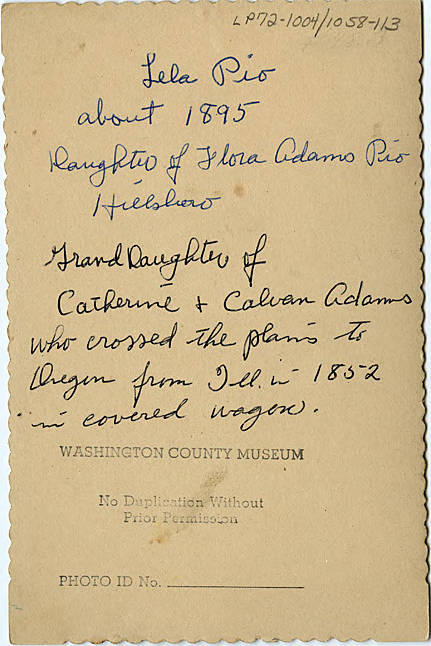 LP72-1004/1058-113
Lela Pio
about 1895
Daughter of Flora Adams Pio
Hillsboro
Grand Daughter of
Catherine + Calvan Adams
who crossed the plains to
Oregon from Ill. in 1852
in covered wagon.
WASHINGTON COUNTY MUSEUM
No Duplication Without
Prior Permission
PHOTO ID No.